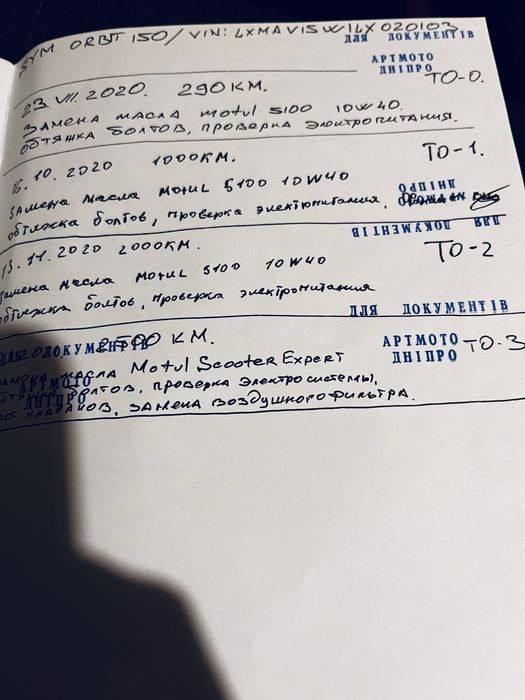 SYM ORBIT 150 / VIN: LXMAV15W1LX020103
ДЛЯ ДОКУМЕНТІВ
АРТМОТО
ДНІПРО
23.VII.2020. 290 КМ. ТО-0.
ЗАМЕНА МАСЛА motul 5100 10W40.
ОБТЯЖКА БОЛТОВ, ПРОВЕРКА ЭЛЕКТРОПИТАНИЯ.
16.10.2020 1000КМ. ТО-1.
Замена масла MOTUL 5100 10W40
ДНІПРО
обтяжка болтов, проверка электропитания.
ДЛЯ ДОКУМЕНТІВ
13.11.2020 2000КМ. ТО-2
Замена масла MOTUL 5100 10W40
обтяжка болтов, проверка электропитания
ДЛЯ ДОКУМЕНТІВ
2500 КМ. ТО-3
ДЛЯ ДОКУМЕНТІВ
АРТМОТО
ДНІПРО
Замена масла Motul Scooter Expert
АРТМОТО
обтяжка болтов, проверка электросистемы,
ДНІПРО
клапанов, замена воздушного фильтра.